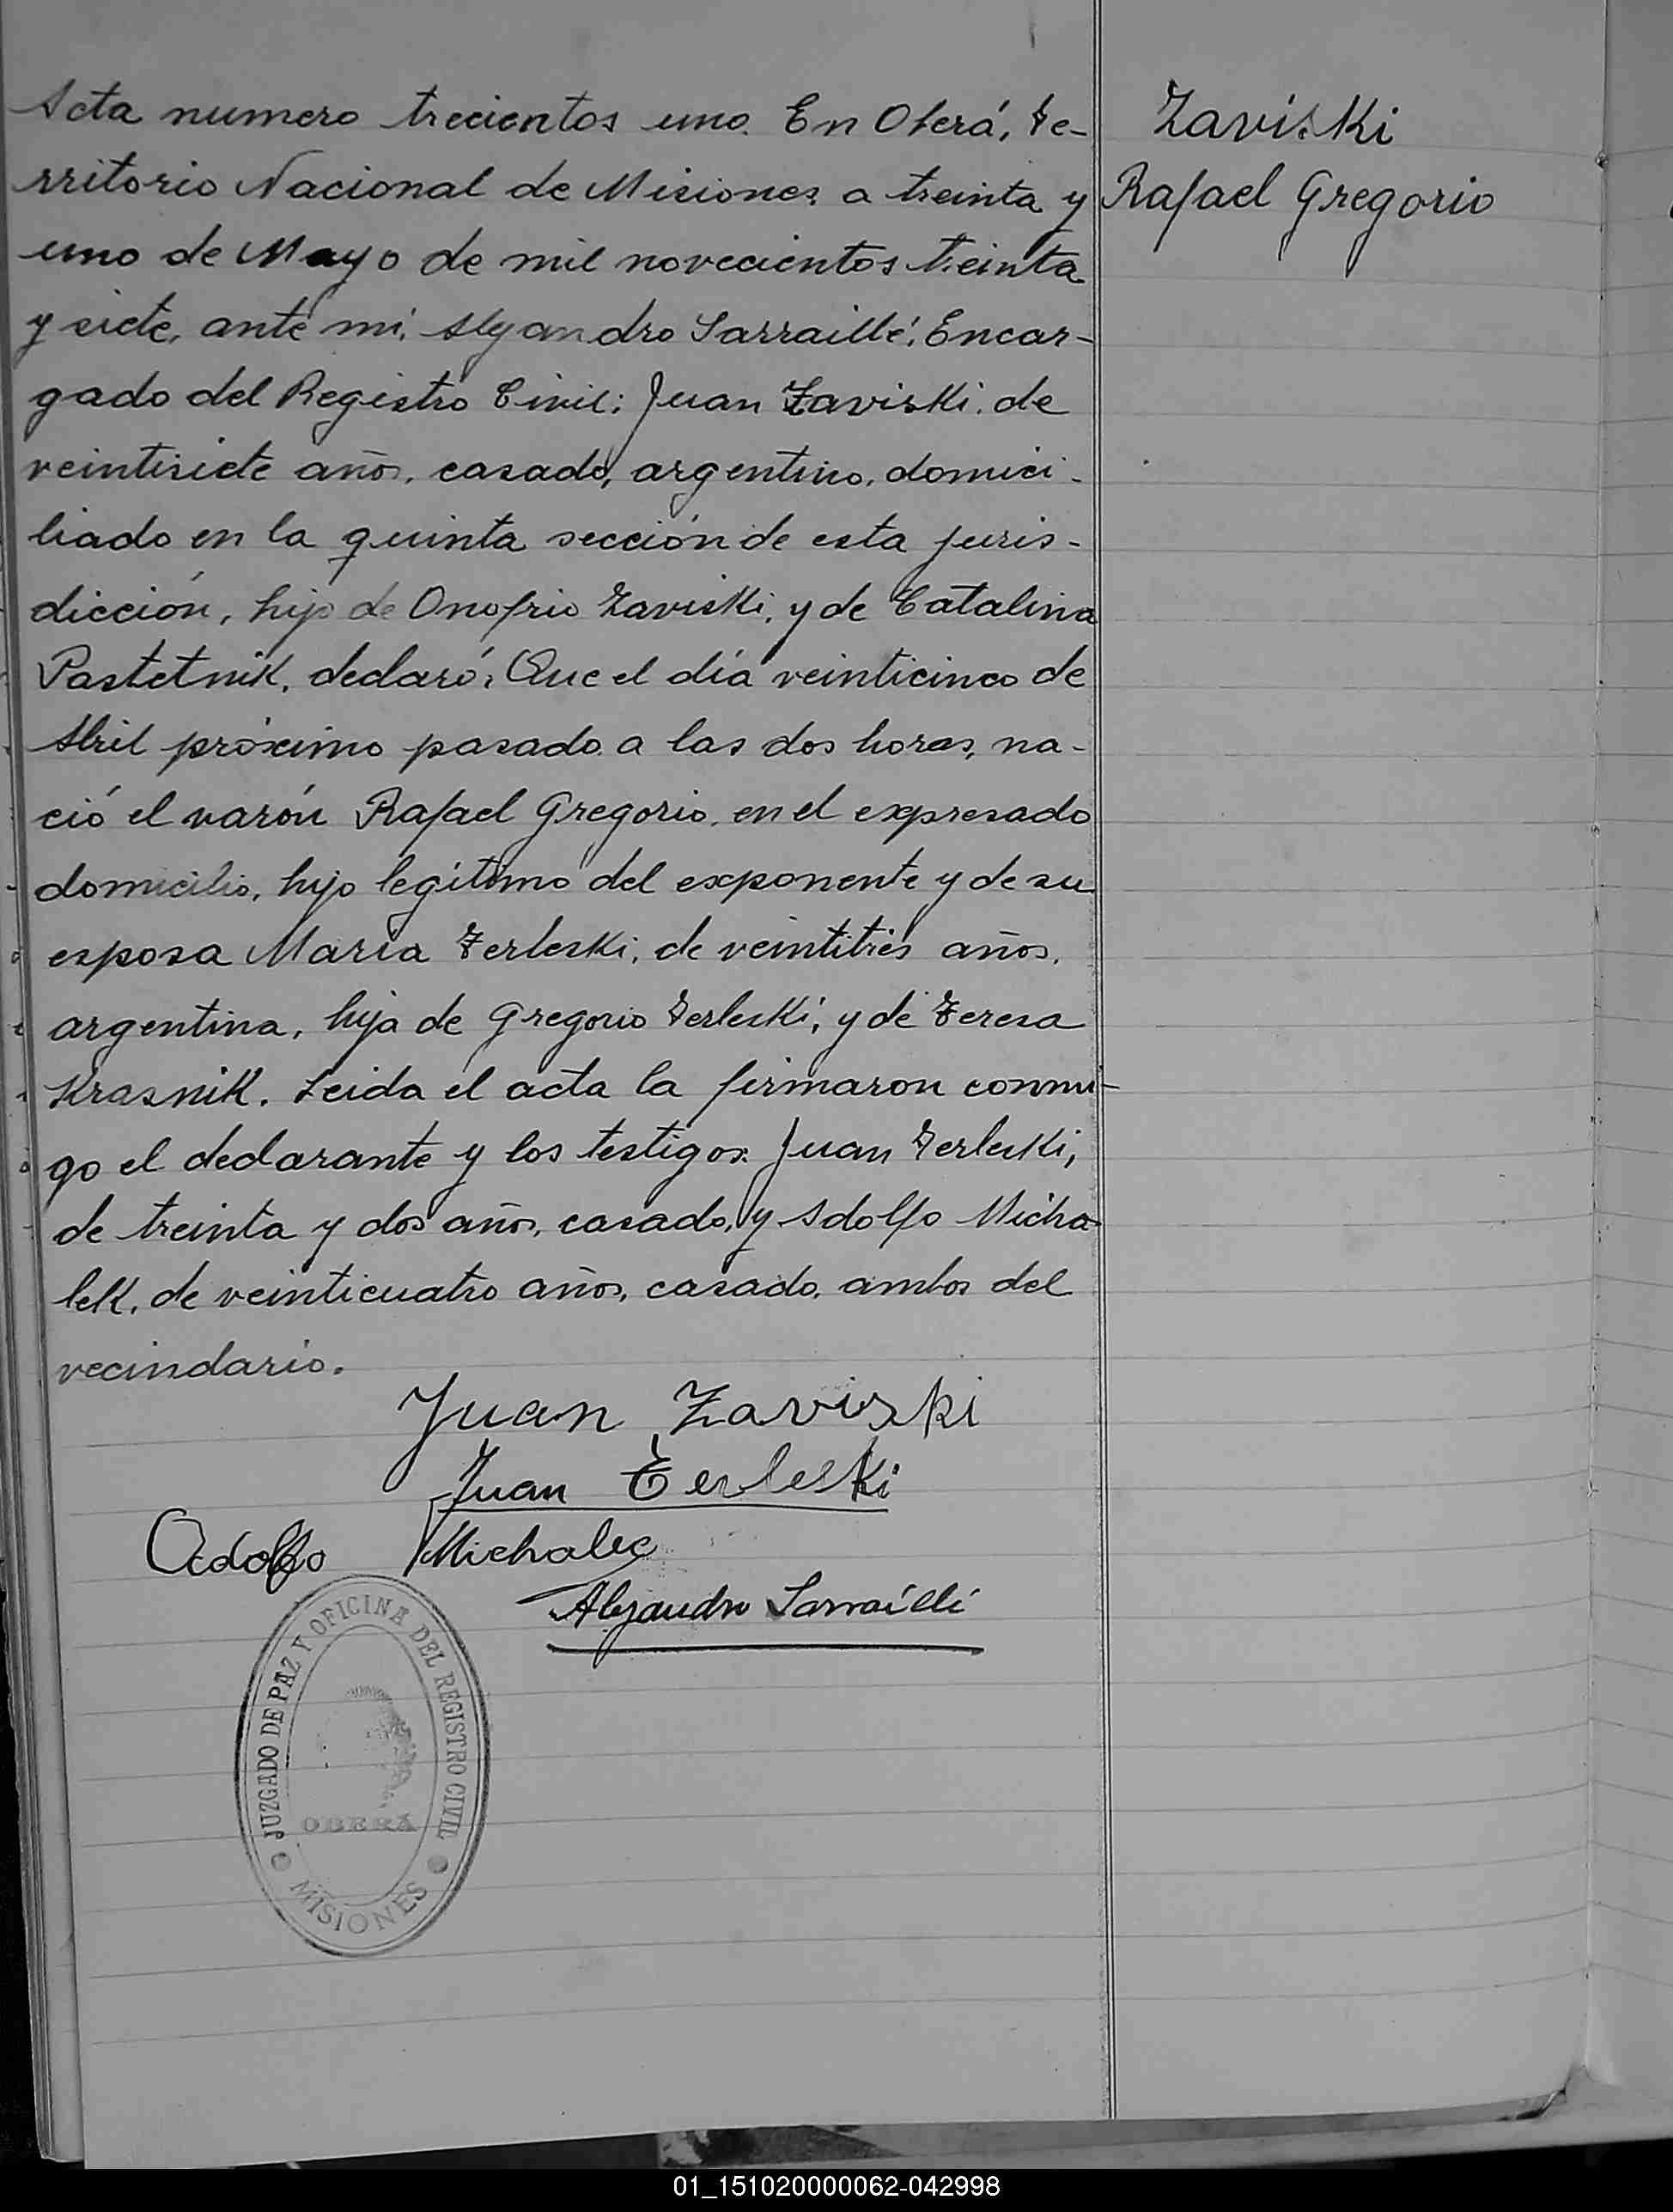 Acta numero trecientos uno. En Oberá, Te-
rritorio Nacional de Misiones a treinta y
uno de Mayo de mil novecientos treinta
y siete, ante mí, Alejandro Sarraillé, Encar-
gado del Registro Civil: Juan Zaviski, de
veintisiete años, casado, argentino, domici-
liado en la quinta sección de esta juris-
dicción, hijo de Onofrio Zaviski, y de Catalina
Pastetnik, declaró: Que el día veinticinco de
Abril próximo pasado a las dos horas, na-
ció el varón Rafael Gregorio, en el expresado
domicilio, hijo legítimo del exponente y de su
esposa María Terleski, de veintitrés años,
argentina, hija de Gregorio Terleski, y de Teresa
Krasnik. Leida el acta la firmaron conmi-
go el declarante y los testigos: Juan Terleski,
de treinta y dos años, casado, y Adolfo Micha-
lek, de veinticuatro años, casado, ambos del
vecindario.
Zaviski
Rafael Gregorio
Juan Zaviski
Juan Terleski
Adolfo Michalec
Alejandro Sarraillé
JUZGADO DE PAZ Y OFICINA DEL REGISTRO CIVIL
OBERÁ
MISIONES
01_151020000062-042998